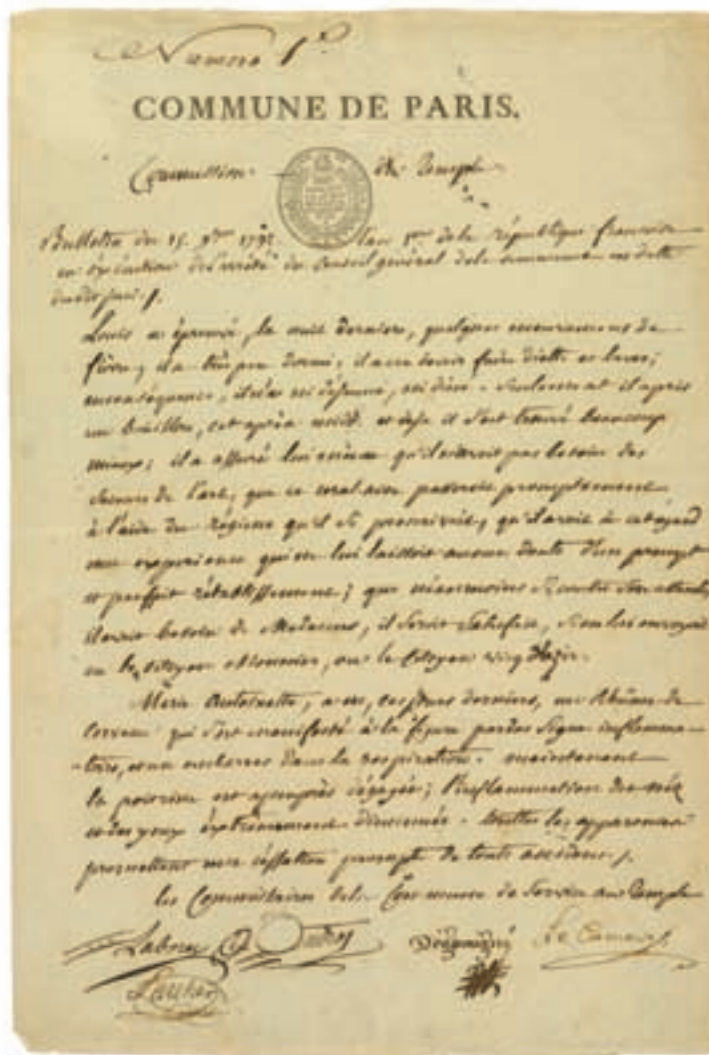 Numero 1er
COMMUNE DE PARIS.
Commission du Temple
Bulletin du 15. 9bre 1792. l'an 1er de la république francoise
en éxécution de l'arrêté du Conseil général de la commune en datte
du dit jour ./.
Louis a éprouvé, la nuit derniere, quelques mouvemens de
fievre; il a très peu dormi; il a cru devoir faire diette
en conséquence, il n'a ni dejeuné, ni diné. Seulement il a pris
un bouillon, cet après midi. et déja il s'est trouvé beaucoup
mieux; il a assuré lui même qu'il n'avoit pas besoin des
secours de l'art, que ce mal aise passeroit promptement
à l'aide du régime qu'il s'est prescrit, qu'il avoit à cet égard
une experience qui ne lui laissoit aucun doute d'un prompt
et parfait rétablissement; que néanmoins si contre son attente,
il avoit besoin de Medecins, il seroit satisfait, si on lui envoyoit
ou le citoyen Monnier, ou le Citoyen vicq d'azir.
Marie Antoinette, a eu, ces jours derniers, un Rhûme de
Cerveau qui s'est manifesté à la figure par des signes inflamma-
-toires, et un embarras dans la respiration. maintenant
la poitrine est à peu près dégagée; l'inflammation du néz
et des yeux extrêmement diminuée. touttes les apparences
promettent une céssation prompte de touts accidens ./.
les Commissaires de la Commune de Service au Temple